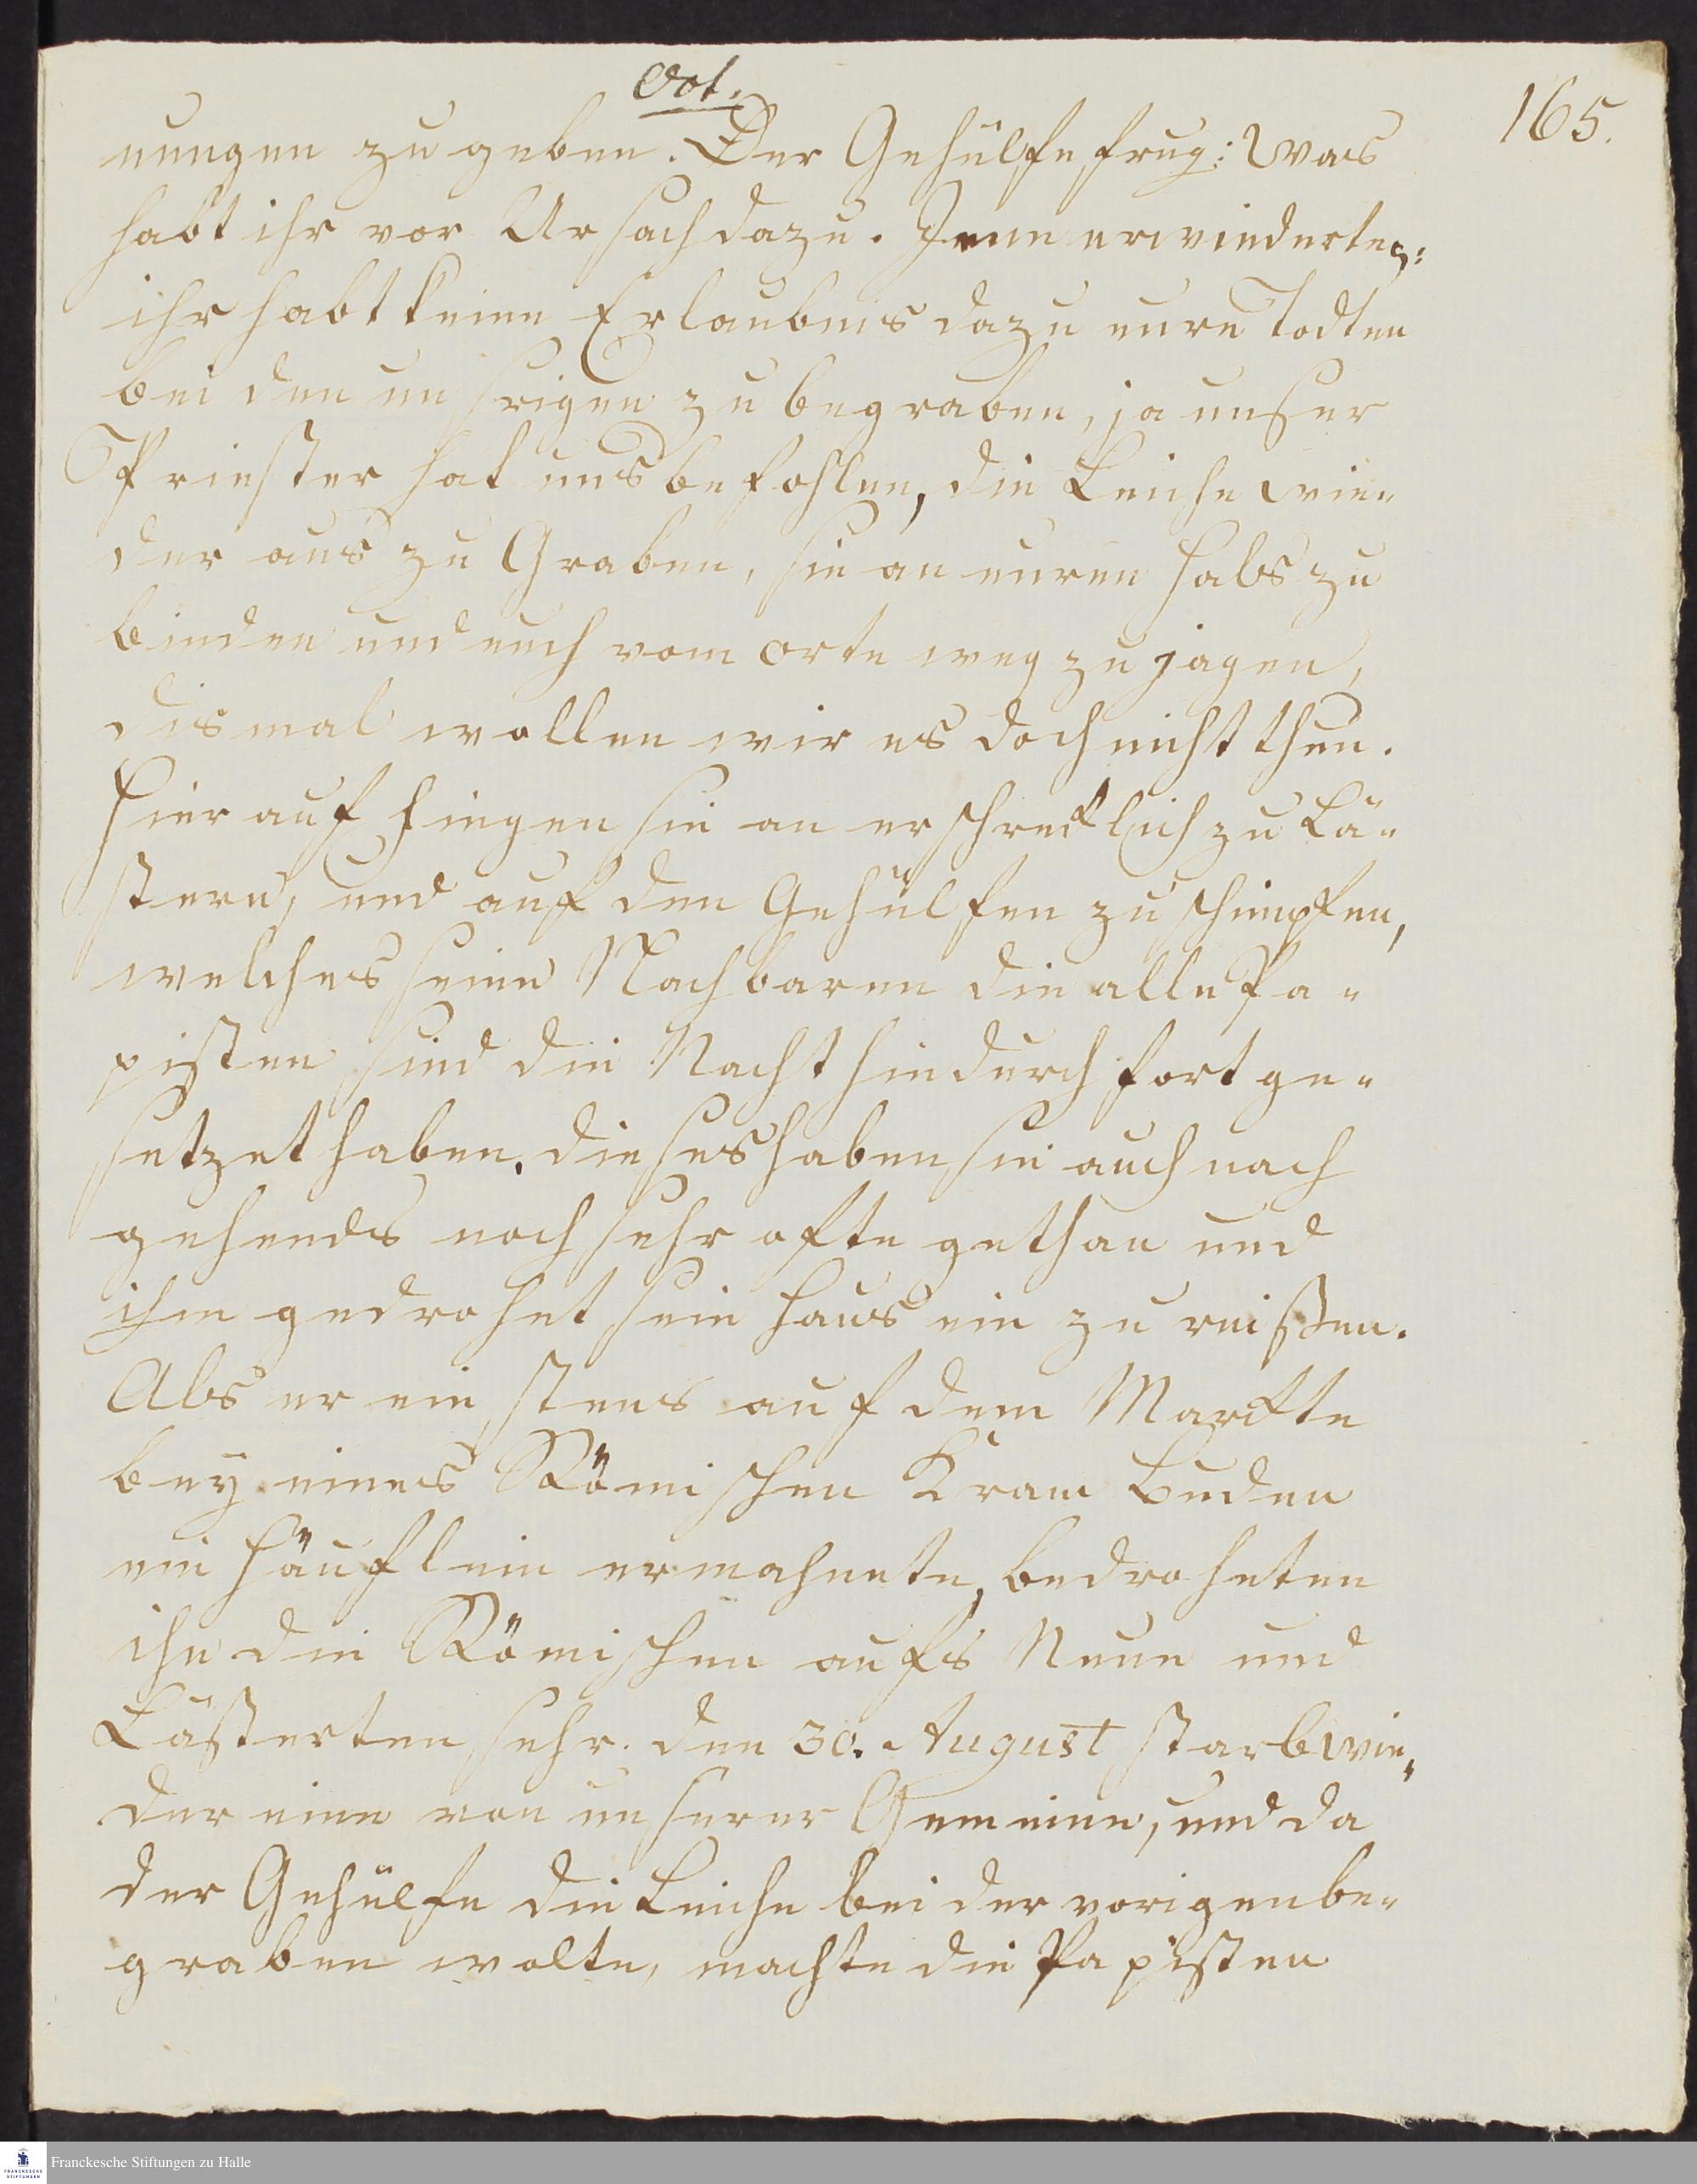 Oct.
165.
nungen zu geben. Der Gehülfe frug: Was
habt ihr vor Ursach dazu. Jene erwiederten:
ihr habt keine Erlaubnis dazu eure Todten
bei den unsrigen zu begraben, ja unser
Priester hat uns befohlen, die Leiche wie-
der aus zu Graben, sie an euren Hals zu
binden und euch vom orte weg zu jagen,
dismal wollen wir es doch nicht thun.
Hier auf fingen sie an erschrecklich zu Lä-
stern, und auf den Gehülfen zu schimpfen,
welches seine Nachbaren die alle Pa-
pisten sind die Nacht hindurch fort ge-
setzet haben. dieses haben sie auch nach
gehends noch sehr ofte gethan und
ihm gedrohet sein Haus ein zu reißen.
Als er einstens auf dem Marckte
bey eines Römischen Kram Buden
ein Häuflein ermahnete, bedroheten
ihn die Römischen aufs Neue und
Lästerten sehr. den 30. August starb wie-
der eine von unserer Gemeine, und da
der Gehülfe die Leiche bei der vorigen be-
graben wolte, machte die Papisten
Franckesche Stiftungen zu Halle